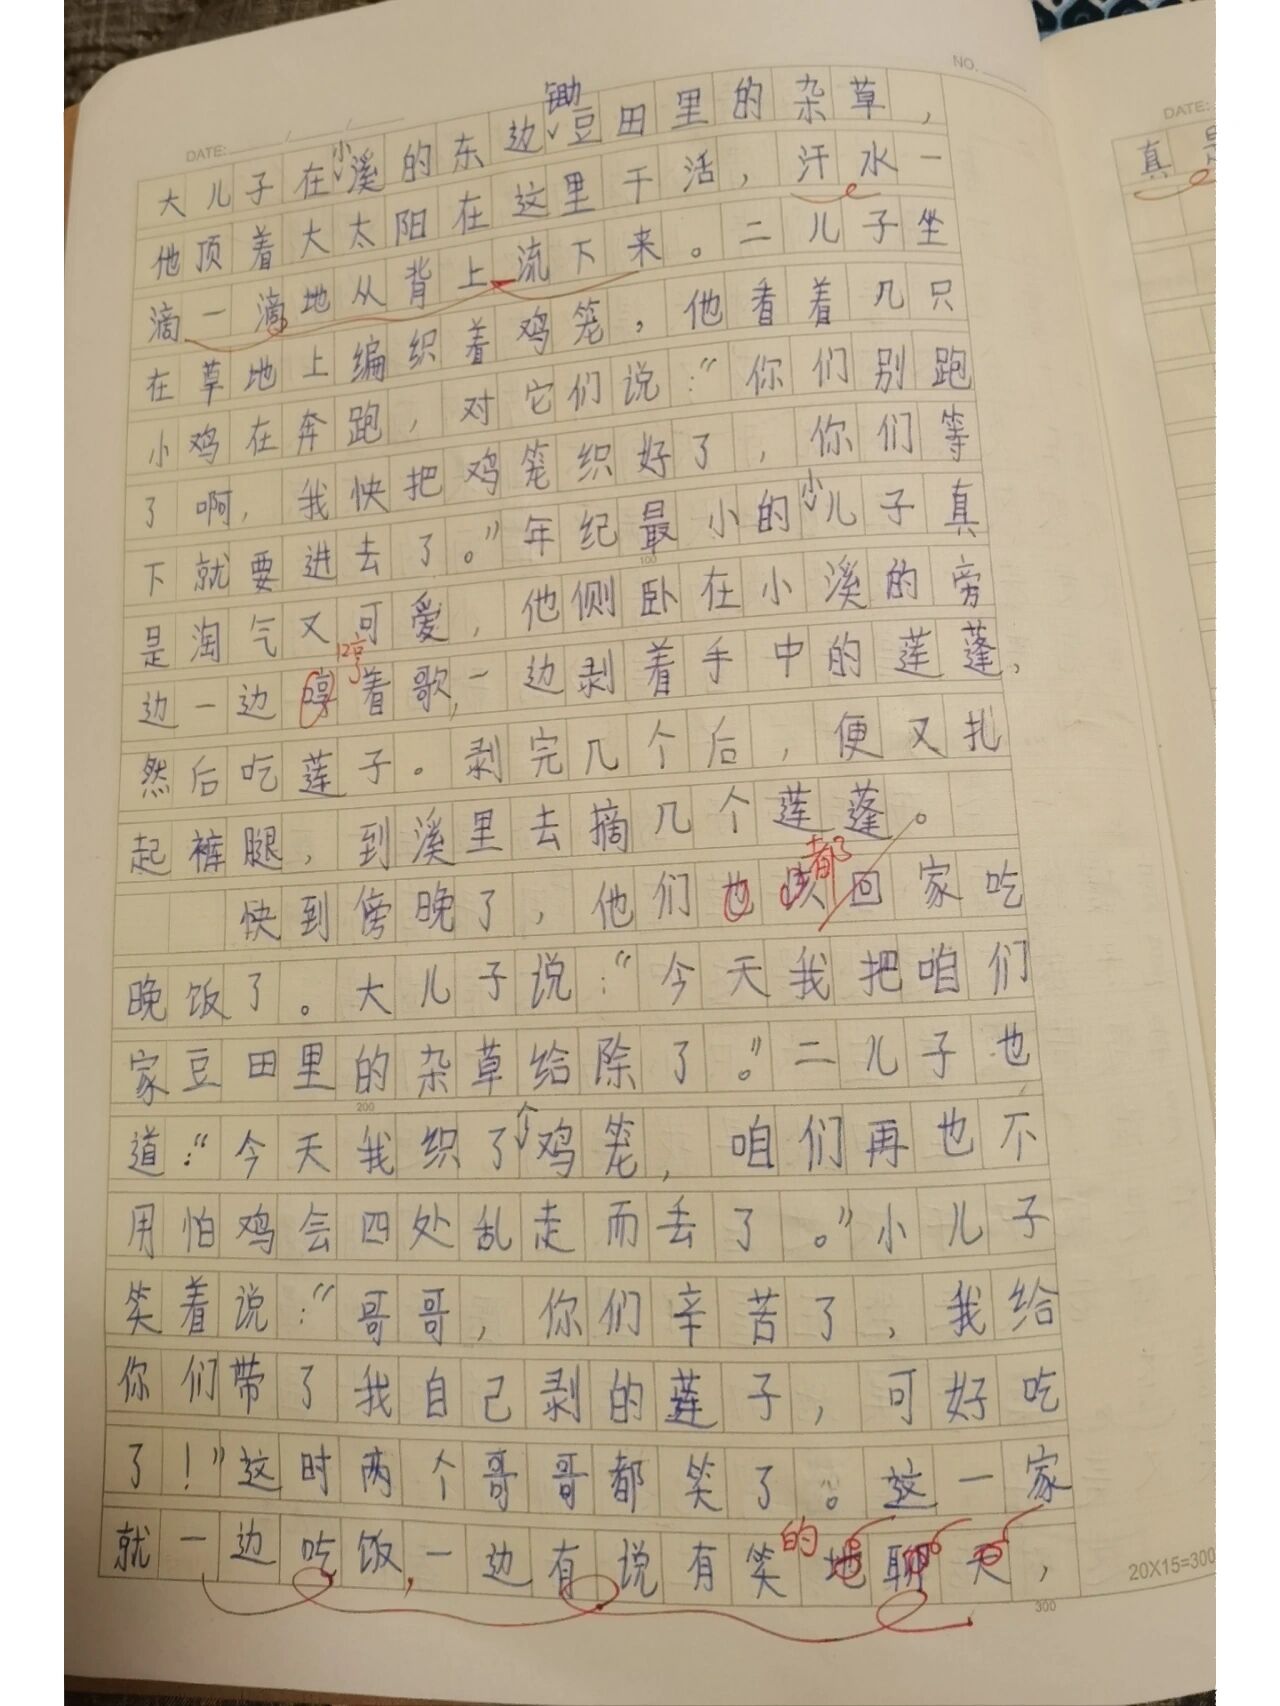 NO.
DATE: / /
大儿子在小溪的东边锄豆田里的杂草，
他顶着大太阳在这里干活，汗水一
滴一滴地从背上流下来。二儿子坐
在草地上编织着鸡笼，他看着几只
小鸡在奔跑，对它们说：“你们别跑
了啊，我快把鸡笼织好了，你们等
下就要进去了。”年纪最小的小儿子真
100
是淘气又可爱，他侧卧在小溪的旁
边一边哼着歌，一边剥着手中的莲蓬，
然后吃莲子。剥完几个后，便又扎
起裤腿，到溪里去摘几个莲蓬。
快到傍晚了，他们都回家吃
晚饭了。大儿子说：“今天我把咱们
家豆田里的杂草给除了。”二儿子也
200
道：“今天我织了个鸡笼，咱们再也不
用怕鸡会四处乱走而丢了。”小儿子
笑着说：“哥哥，你们辛苦了，我给
你们带了我自己剥的莲子，可好吃
了！”这时两个哥哥都笑了。这一家
就一边吃饭，一边有说有笑的地聊天，
300
20X15=300
DATE:
真是